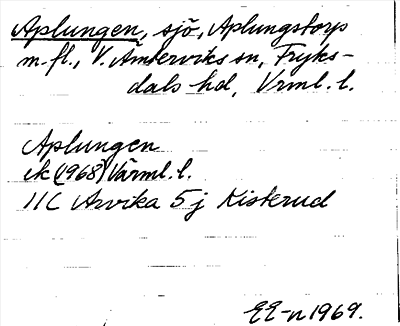 Aplungen, sjö, Aplungstorp
m.fl., V. Ämterviks sn, Fryks-
dals hd, Vrml. l.
Aplungen
ek (1968) Värml. l.
11C Arvika 5j Kisterud
EE-n 1969.